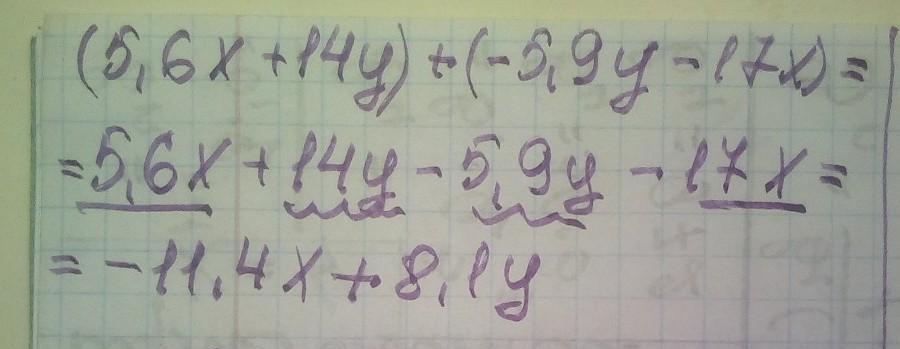 (5,6x+14y)+(-5,9y-17x)=
=5,6x+14y-5,9y-17x=
=-11,4x+8,1y